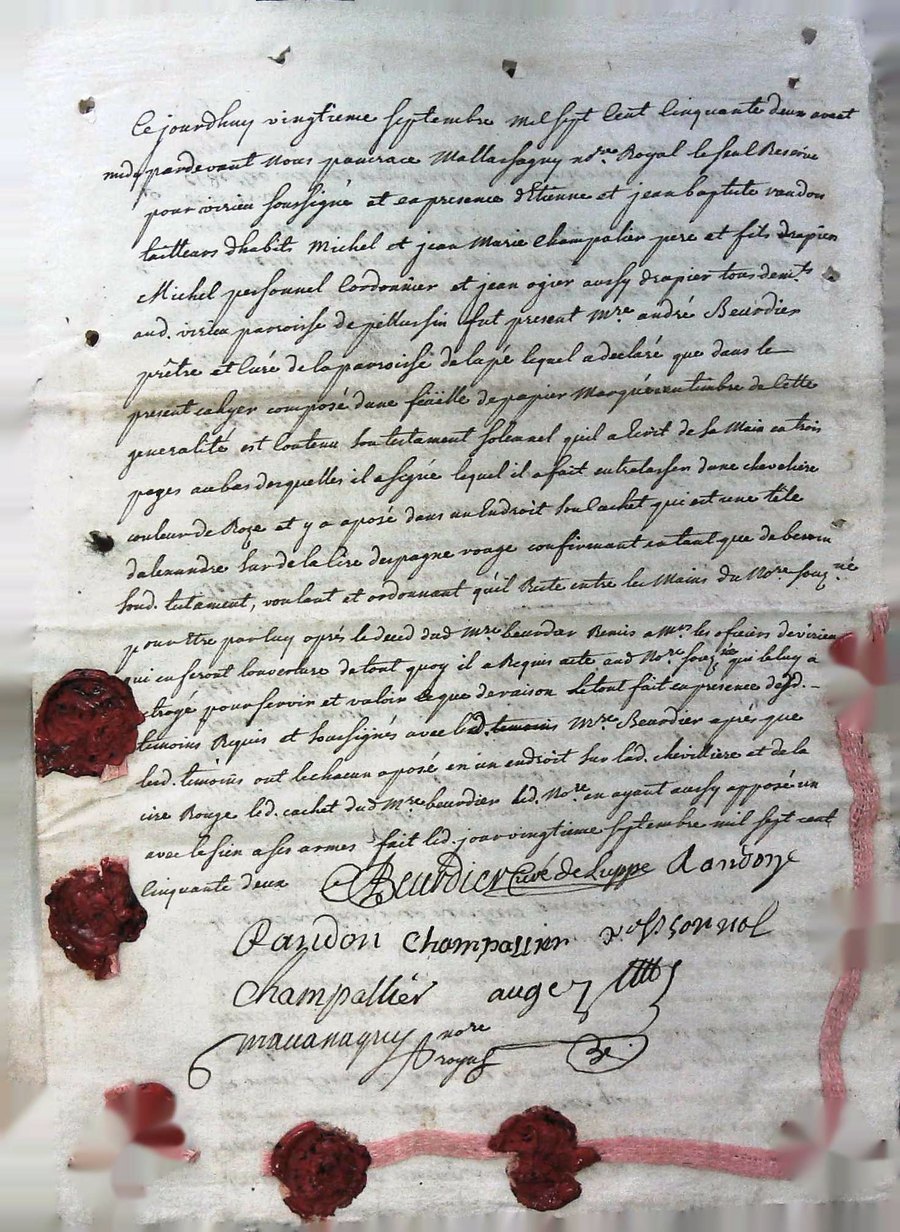 Ce jourdhuy vingtieme septembre mil sept Cent Cinquante deux avant
midy pardevant Nous pancrace Mallassagny nore Royal le seul Reservé
pour virieu soussigné et en presence d'Etienne et jean baptiste randon
tailleurs dhabits Michel et jean Marie Champalier pere et fils drapiers
Michel personnel Cordonnier et jean ogier aussy drapier tous demts
aud. virieu parroisse de pellussin fut present Mre andré Beurdier
prêtre et Curé de la parroisse de lupé lequel a declaré que dans le
present cahyer composé dune féüille de papier Marqué au timbre de Cette
generalité est Contenu son testament solennel quil a Ecrit de sa Main en trois
pages au bas desquelles il a signé lequel il a fait entrelasser dune cheveliere
couleur de Roze et y a aposé dans un Endroit son Cachet qui est une tête
dalexandre sur de la Cire despagne rouge confirmant en tant que de besoin
sond. testament, voulant et ordonnant qu'il Reste entre les Mains du Nore souzné
pour être par luy aprés le deced dud Mre beurdier Remis a Mrs les oficiers de virieu
qui en feront louverture de tout quoy il a Requis acte aud Nore souzné qui le luy a
octroyé pour servir et valoir ce que de raison le tout fait en presence desd.
temoins Requis et soussignés avec led. Mre Beurdier aprés que
lesd. temoins ont lechacun aposé en un endroit sur lad. cheviliere et de la
cire Rouge led. cachet dud Mre beurdier led. Nore en ayant aussy apposé un
avec le sien a ses armes fait led. jour vingtieme septembre mil sept cent
Cinquante deux Beurdier Curé de Luppe Randon
Randon Champallier
Champallier auger
nore
royal